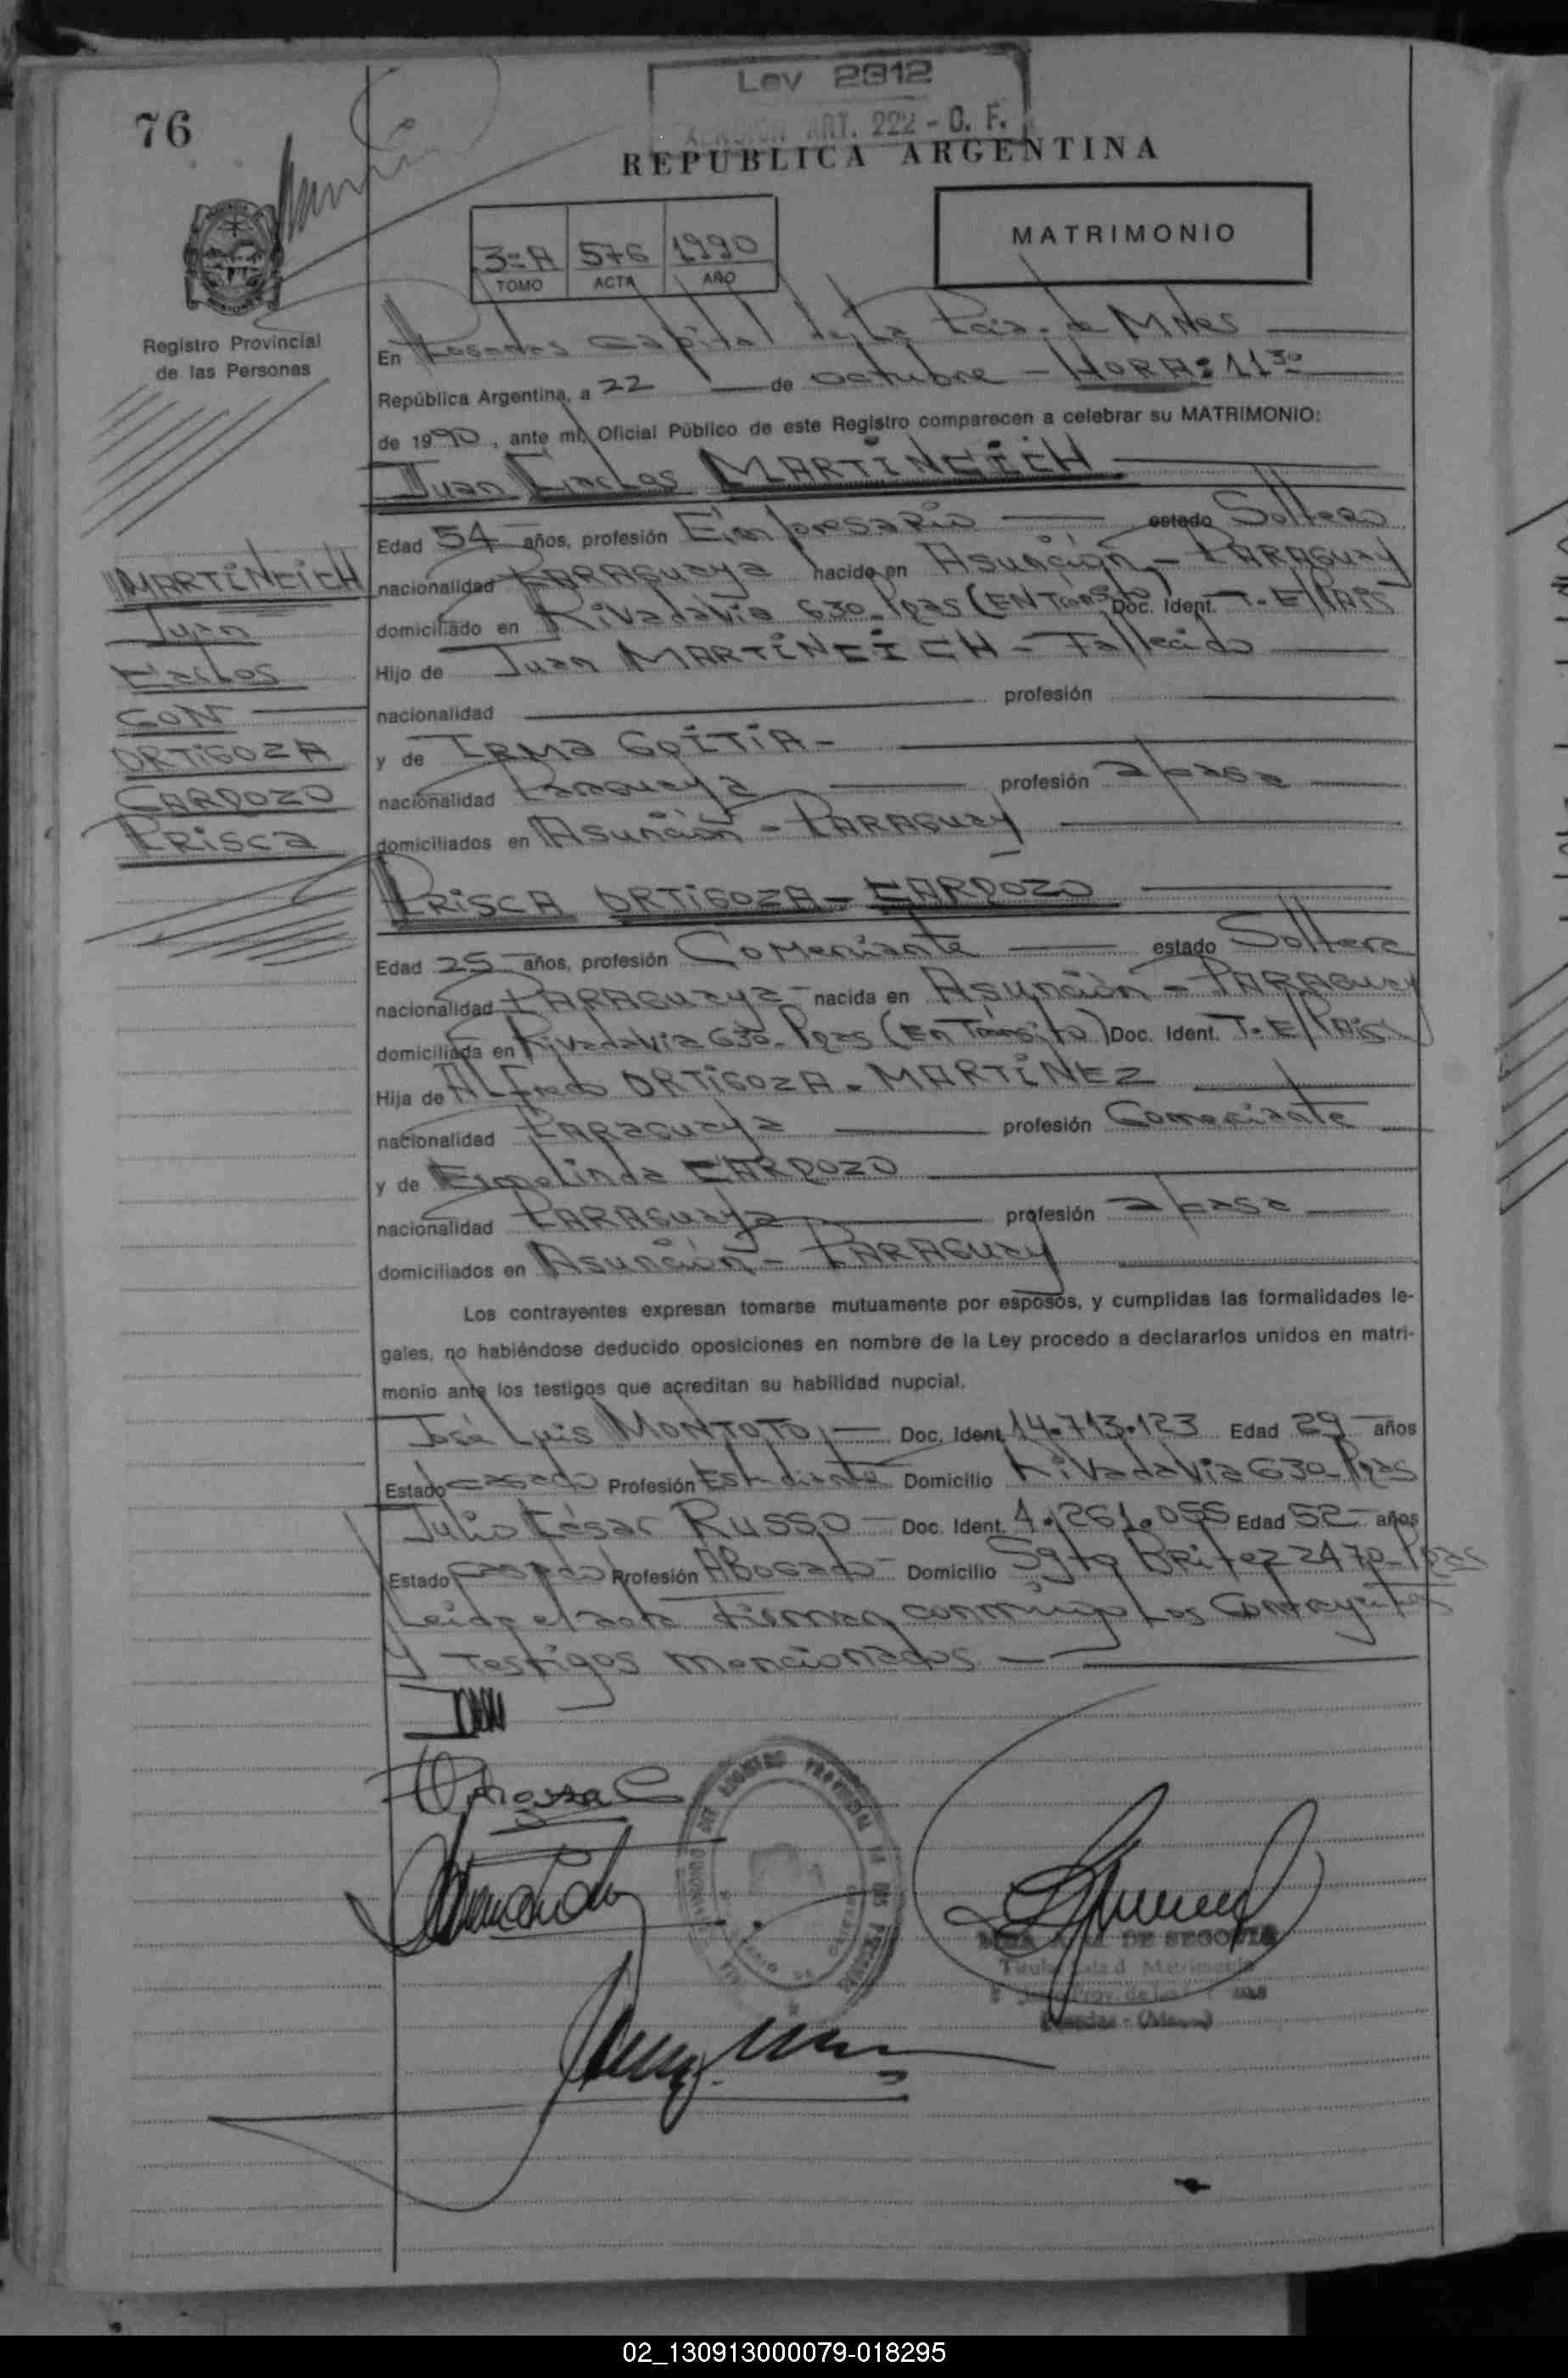 76
Ley 2312
ART. 222 - O. F.
REPUBLICA ARGENTINA
MATRIMONIO
3º A 576 1990
TOMO ACTA AÑO
Registro Provincial
de las Personas
En Posadas Capital de la Pcia. de Mnes
República Argentina, a 22 de octubre - HORA: 11 30
de 1990, ante mí, Oficial Público de este Registro comparecen a celebrar su MATRIMONIO:
Juan Carlos MARTINCICH
Edad 54 años, profesión Empresario estado Soltero
nacionalidad PARAGUAYA nacido en Asunción - PARAGUAY
domiciliado en Rivadavia 630 - Pdas (EN Transito) Doc. Ident. T. E/PAIS
Hijo de Juan MARTINCICH - Fallecido
nacionalidad profesión
y de IRMA GOITIA -
nacionalidad Paraguaya profesión a/casa
domiciliados en Asunción - PARAGUAY
MARTINCICH
Juan
Carlos
CON
ORTIGOZA
CARDOZO
PRISCA
PRISCA ORTIGOZA - CARDOZO
Edad 25 años, profesión Comerciante estado Soltera
nacionalidad PARAGUAYA - nacida en Asunción - PARAGUAY
domiciliada en Rivadavia 630 - Pdas (En Tránsito) Doc. Ident. T. E/PAIS
Hija de Alfredo ORTIGOZA - MARTINEZ
nacionalidad PARAGUAYA profesión Comerciante
y de Ermelinda CARDOZO
nacionalidad PARAGUAYA profesión a/casa
domiciliados en Asunción - PARAGUAY
Los contrayentes expresan tomarse mutuamente por esposos, y cumplidas las formalidades le-
gales, no habiéndose deducido oposiciones en nombre de la Ley procedo a declararlos unidos en matri-
monio ante los testigos que acreditan su habilidad nupcial.
José Luis MONTOTO - Doc. Ident. 14.713.123 Edad 29 años
Estado casado Profesión Estudiante Domicilio Rivadavia 630 - Pdas
Julio César RUSSO - Doc. Ident. 4.261.055 Edad 52 años
Estado casado Profesión ABOGADO - Domicilio Sgto Britez 2470 - Pdas
Leida el acta Firman conmigo Los Contrayentes
Y Testigos mencionados -
DE SEGOVIA
Matrimonio
Posadas - (Mnes)
02_130913000079-018295